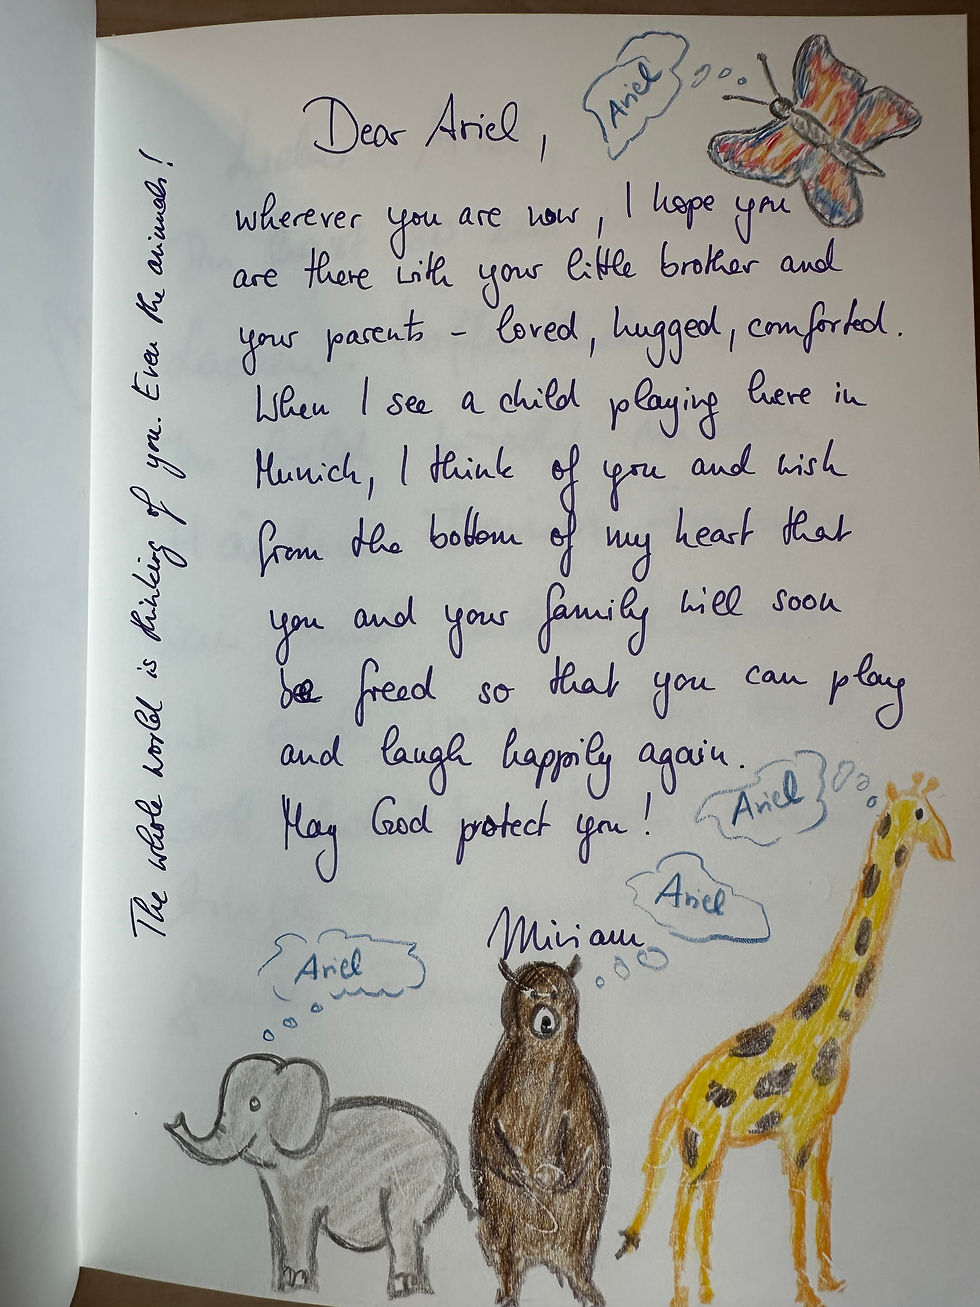 Ariel
Dear Ariel,
wherever you are now, I hope you
are there with your little brother and
your parents – loved, hugged, comforted.
When I see a child playing here in
Munich, I think of you and wish
from the bottom of my heart that
you and your family will soon
be freed so that you can play
and laugh happily again.
May God protect you!
Miriam
The whole world is thinking of you. Even the animals!
Ariel
Ariel
Ariel